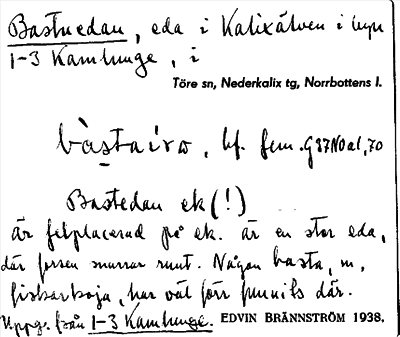 Bastuedan, eda i Kalixälven i byn
1-3 Kamlunge, i
Töre sn, Nederkalix tg, Norrbottens l.
bf. fem.
Bastedan ek(!)
är felplacerad på ek. är en stor eda,
där forsen snurrar runt. Någon basta, m,
fiskarkoja, har väl förr funnits där.
Uppg. från 1-3 Kamlunge. EDVIN BRÄNNSTRÖM 1938.